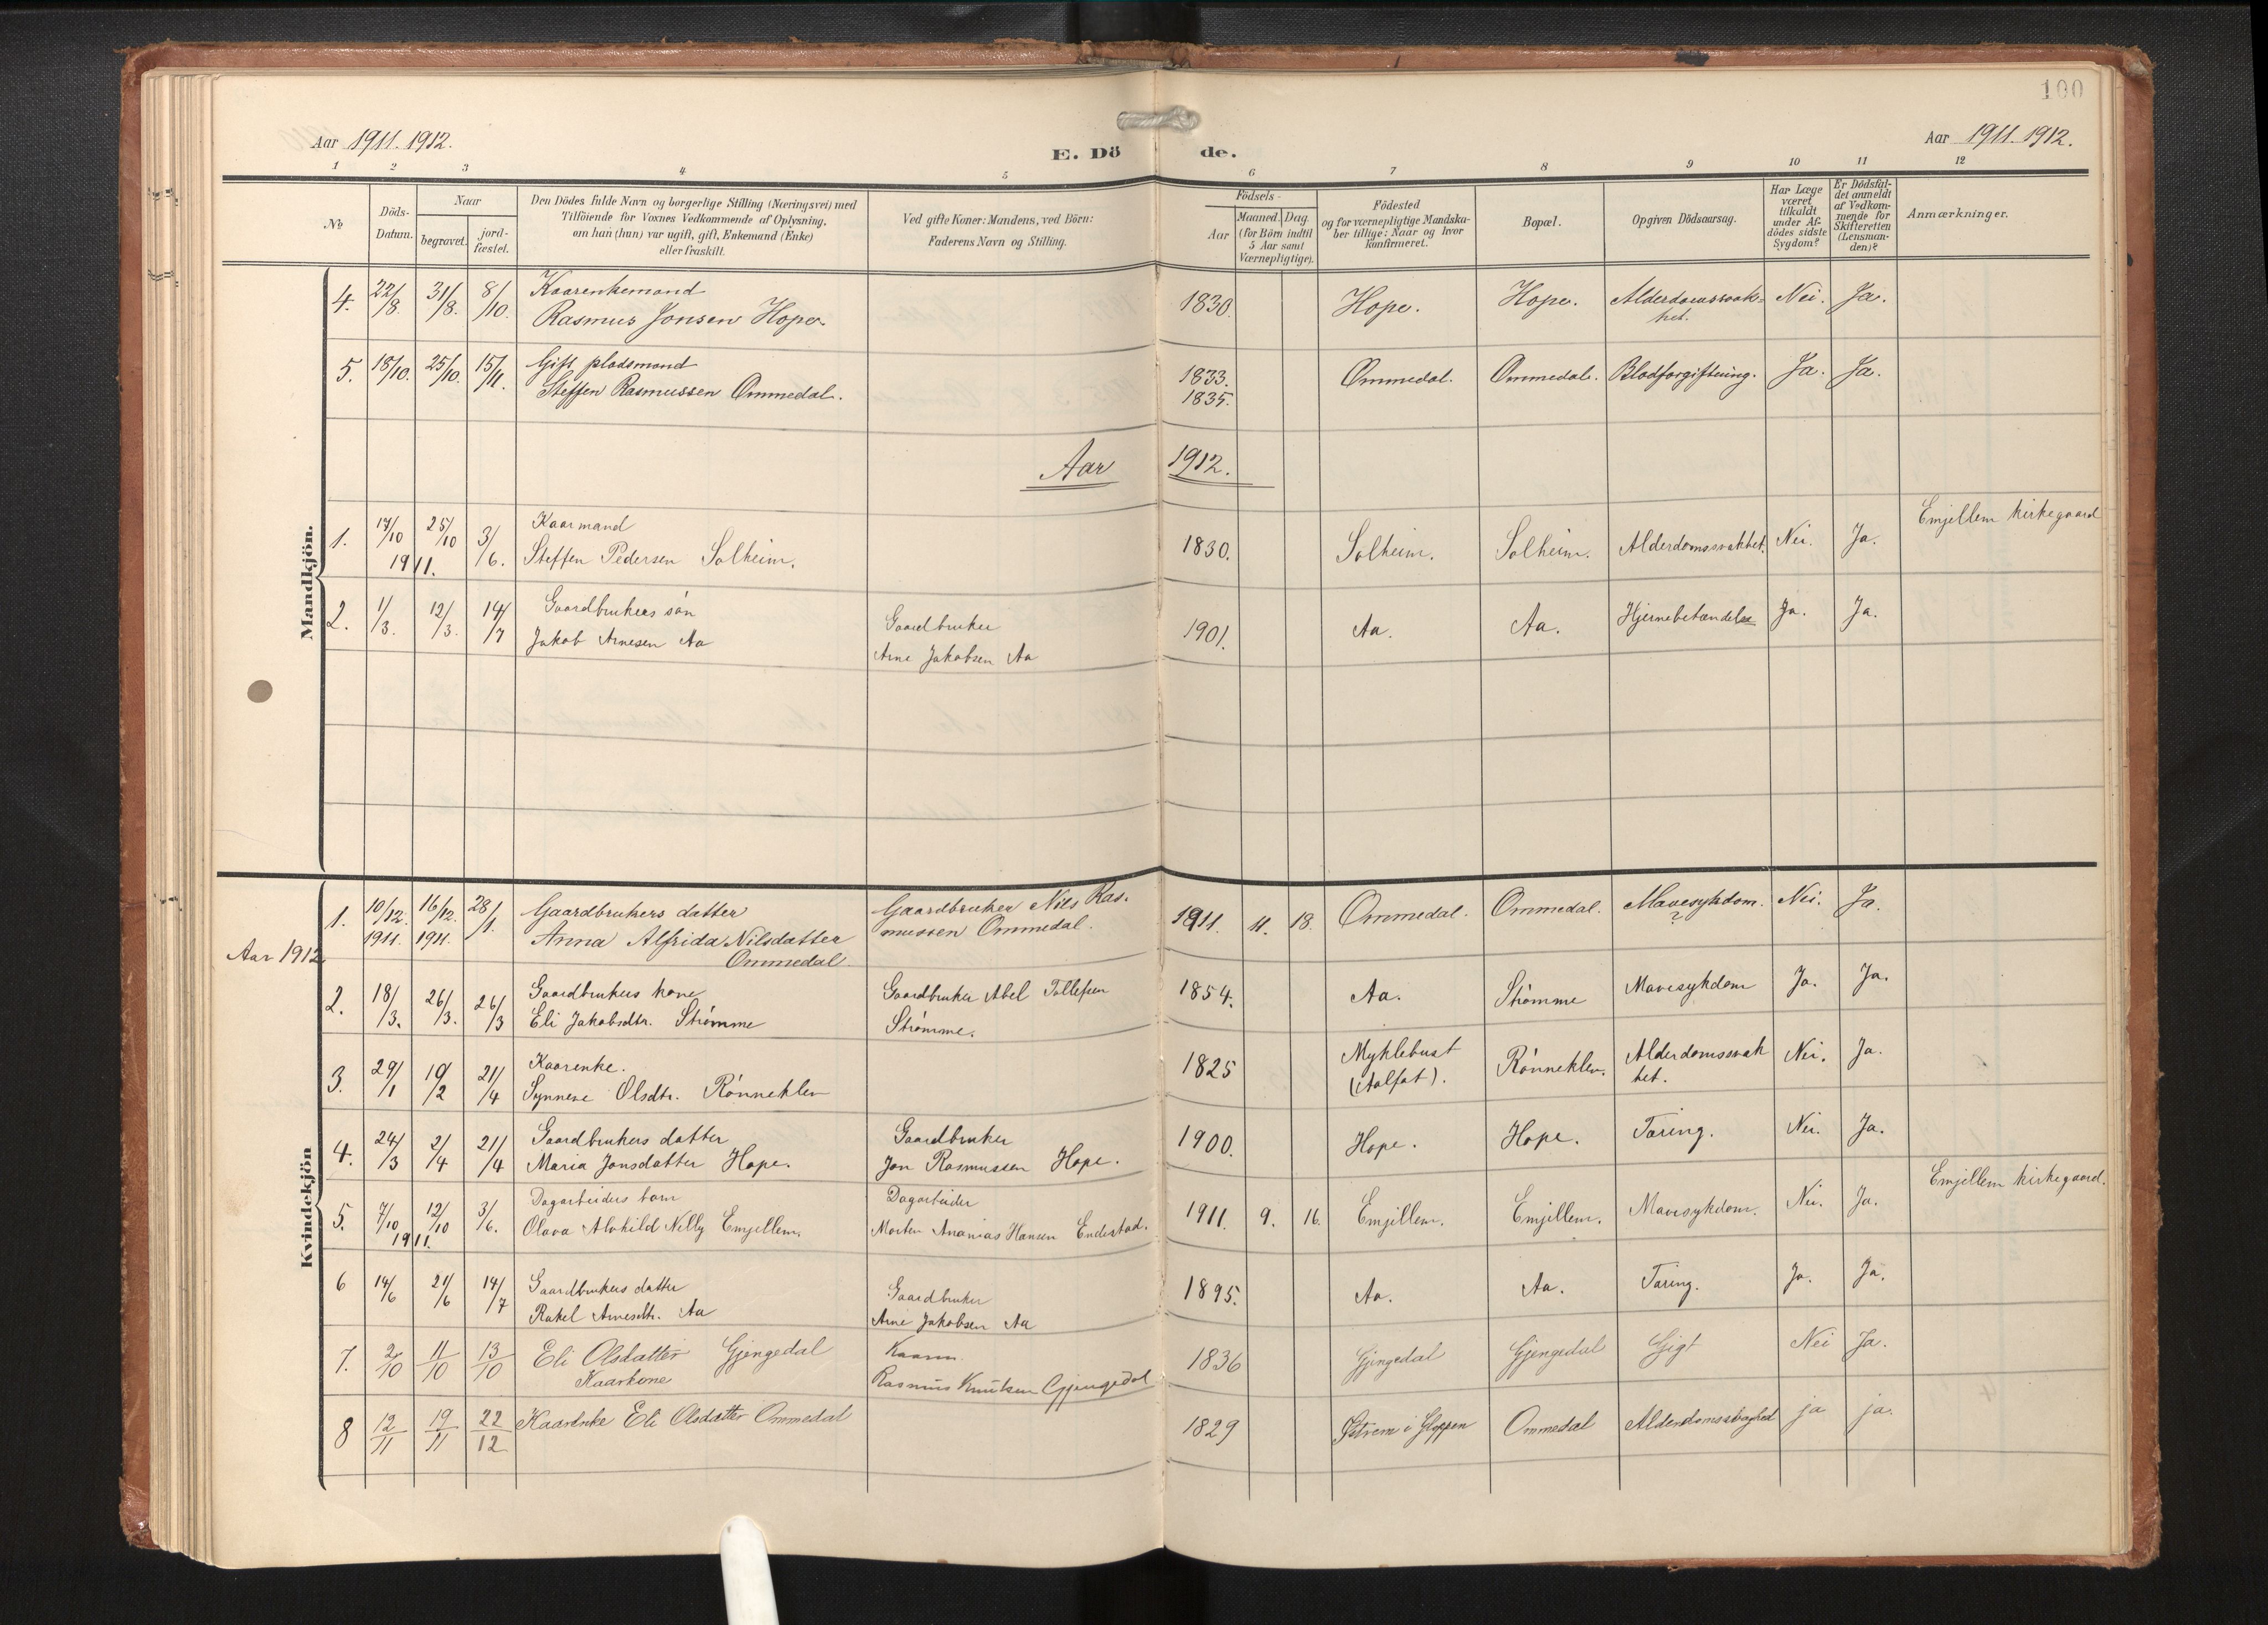 100
Aar 1911. 1912.
E. Dö de.
Aar 1911. 1912.
1 2 3 4 5 6 7 8 9 10 11 12
No
Döds-Datum.
Naar
begravet.
jord-fæstet.
Den Dödes fulde Navn og borgerlige Stilling (Næringsvei) med
Tilföiende for Voxnes Vedkommende af Oplysning,
om han (hun) var ugift, gift, Enkemand (Enke)
eller fraskilt.
Ved gifte Koner: Mandens, ved Börn:
Faderens Navn og Stilling.
Födsels-
Aar
Maaned. Dag.
(for Börn indtil
5 Aar samt
Værnepligtige).
Födested
og for værnepligtige Mandska-
ber tillige: Naar og hvor
konfirmeret.
Bopæl.
Opgiven Dödsaarsag.
Har Læge
været
tilkaldt
under Af-
dödes sidste
Sygdom?
Er Dödsfal-
det anmeldt
af Vedkom-
mende for
Skifteretten
(Lensman-
den)?
Anmærkninger.
Mandkjön.
4. 22/8. 31/8. 8/10. Kaarenkemand 1830. Hope. Hope. Alderdomssvak- Nei. Ja.
Rasmus Jonsen Hope. het.
5. 18/10. 25/10. 15/11. Gift pladsmand 1833. Ommedal. Ommedal. Blodforgiftning. Ja. Ja.
Steffen Rasmussen Ommedal. 1835.
Aar 1912.
1. 17/10 25/10 3/6. Kaarmand 1830. Solheim. Solheim. Alderdomssvakhet. Nei. Ja. Emjellem kirkegaard
1911. Steffen Pedersen Solheim.
2. 1/3. 12/3. 14/7 Gaardbrukers søn Gaardbruker 1901. Aa. Aa. Hjernebetændelse Ja. Ja.
Jakob Arnesen Aa Arne Jakobsen Aa
Kvindekjön
Aar 1912.
1. 10/12. 16/12. 28/1. Gaardbrukers datter Gaardbruker Nils Ras- 1911. 11. 18. Ommedal. Ommedal. Mavesykdom. Nei. Ja.
1911. 1911. Anna Alfrida Nilsdatter mussen Ommedal. ?
Ommedal
2. 18/3. 26/3. 26/3 Gaardbrukers kone Gaardbruker Abel Tollefsen 1854. Aa. Strømme Mavesykdom Ja. Ja.
Eli Jakobsdtr. Strømme Strømme.
3. 29/1 19/2 21/4 Kaarenke. 1825 Myklebust Rønneklev. Alderdomssvak Nei. Ja.
Synneve Olsdtr. Rønneklev (i Jølst). het.
4. 24/3 2/4 21/4 Gaardbrukers datter Gaardbruker 1900. Hope. Hope. Tæring. Nei. Ja.
Maria Jonsdatter Hope. Jon Rasmussen Hope.
5. 7/10 12/10 3/6. Dagarbeiders barn Dagarbeider 1911. 9. 16. Emjellem. Emjellem. Mavesykdom. Nei. Ja. Emjellem kirkegaard.
1911. Olava Alvhild Nelly Emjellem. Morten Ananias Hansen Endestad.
6 14/6 21/6 14/7 Gaardbrukers datter Gaardbruker 1895. Aa. Aa. Tæring. Ja. Ja.
Rakel Arnesdtr. Aa Arne Jakobsen Aa
7. 2/10 11/10 13/10 Eli Olsdatter Gjengedal Kaarm. 1836 Gjengedal Gjengedal Gigt Nei Ja.
Kaarkone Rasmus Knutsen Gjengedal
8 12/11 19/11 22/12 Kaarenke Eli Olsdatter Ommedal 1829 i Gloppen Ommedal Alderdomssvaghed ja ja.